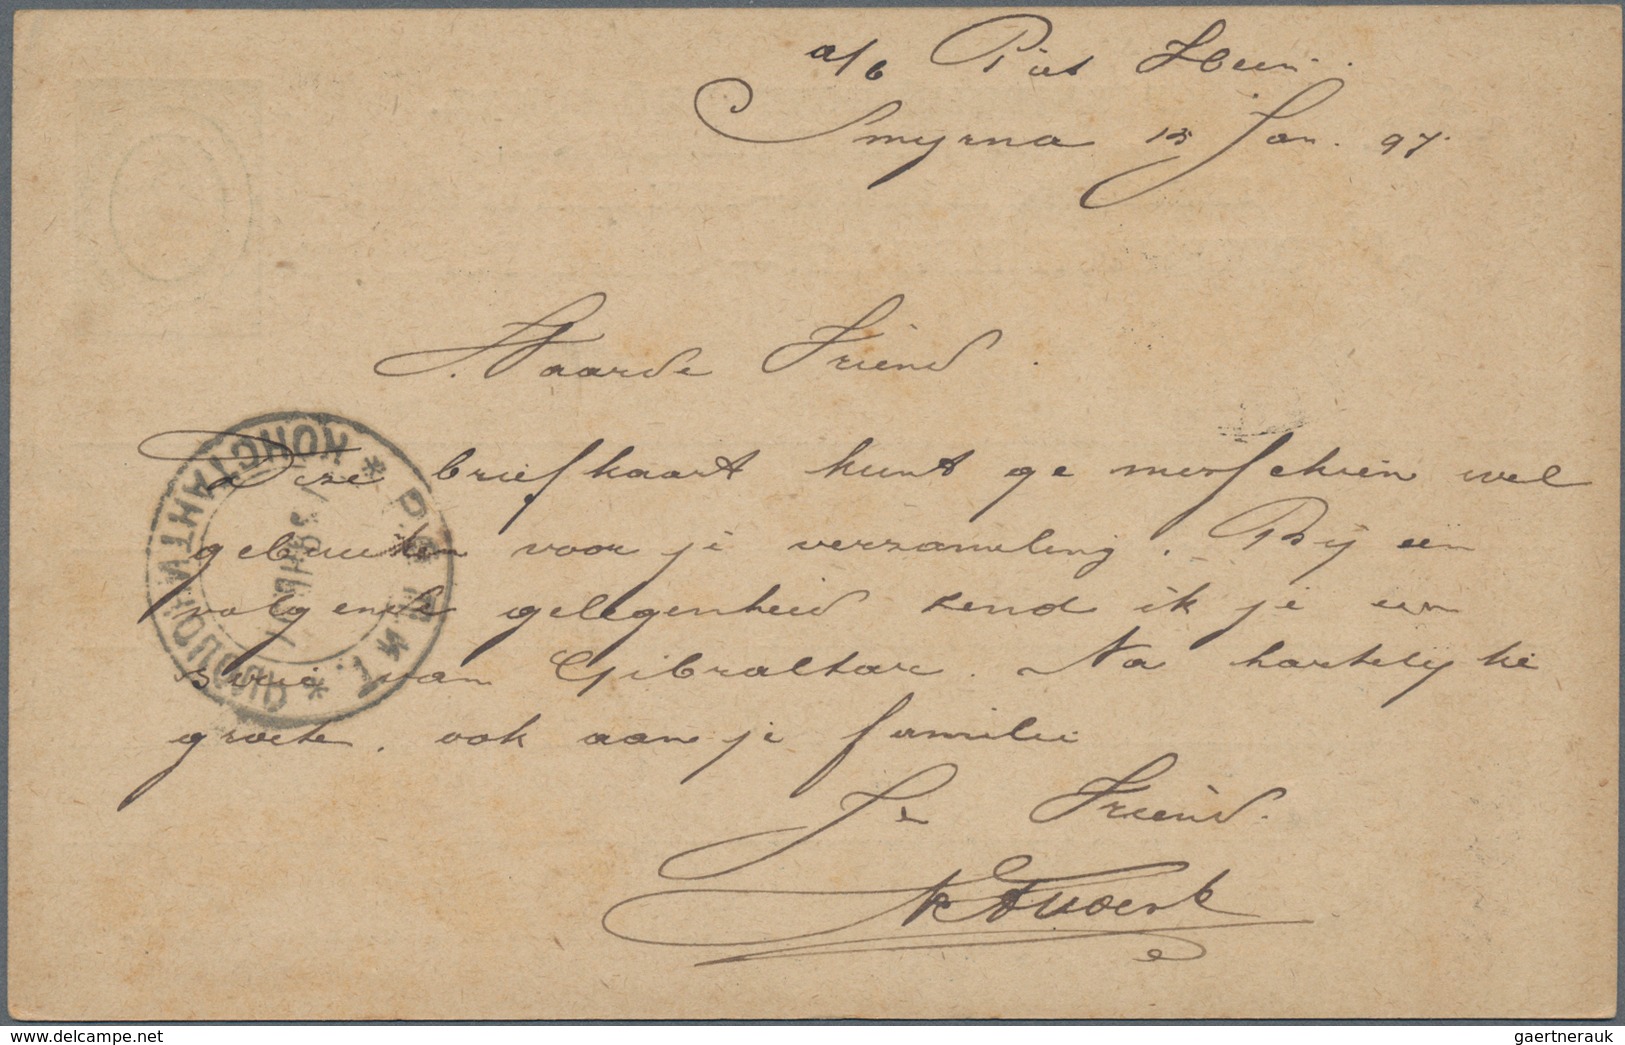 a/b Piet Hein.
Smyrna 13 Jan. 97.
Waarde Vriend.
Deze briefkaart kunt ge misschien wel
gebruiken voor je verzameling. Bij een
volgende gelegenheid zend ik je een
van Gibraltar. Na hartelijke
groete, ook aan je familie
Je Vriend.
* КОНСТАНТИНОПОЛЬ * Р.О.П.и Т.
delcampe.net
gaertnerauk